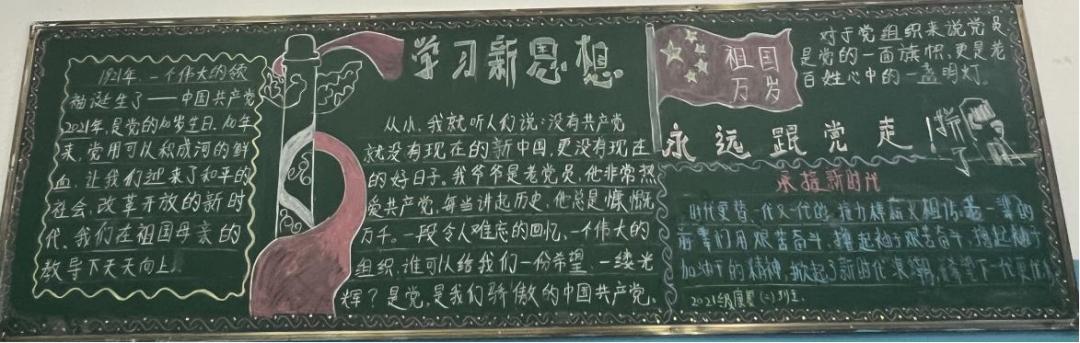 1921年,一个伟大的领
袖诞生了——中国共产党
2021年,是党的100岁生日,100年
来,党用可以积成河的鲜
血,让我们迎来了和平的
社会,改革开放的新时
代,我们在祖国母亲的
教导下天天向上
学习新思想
从小,我就听人们说:没有共产党
就没有现在的新中国,更没有现在
的好日子。我爷爷是老党员,他非常热
爱共产党,每当讲起历史,他总是慷慨
万千。一段令人难忘的回忆,一个伟大的
组织,谁可以给我们一份希望、一缕光
辉?是党,是我们骄傲的中国共产党。
祖国
万岁
对于党组织来说党员
是党的一面旗帜,更是老
百姓心中的一盏明灯。
永远跟党走!
承接新时代
时代更替一代又一代的接力棒
前辈们用艰苦奋斗,撸起袖子艰苦奋斗,撸起袖子
加油干的精神,掀起了新时代浪潮,希望下一代更
2021级